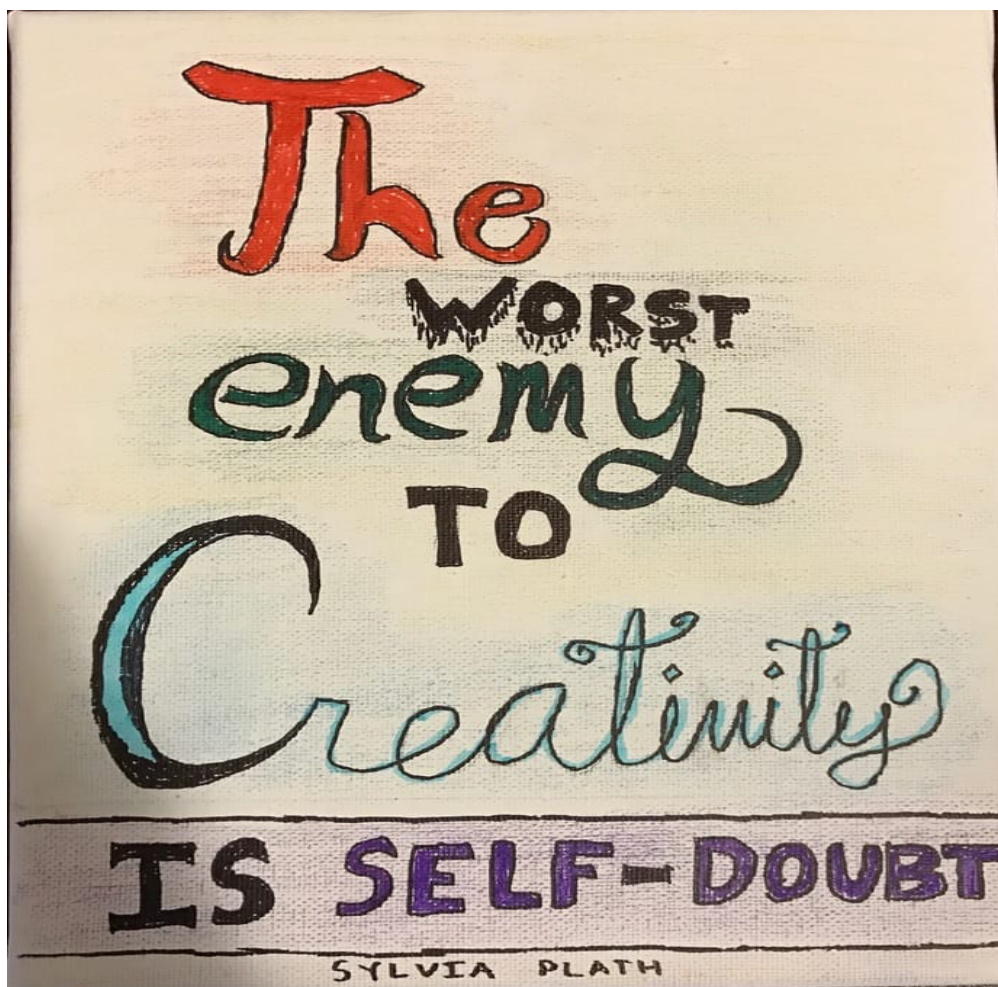 The
WORST
enemy
TO
Creativity
IS SELF-DOUBT
SYLVIA PLATH